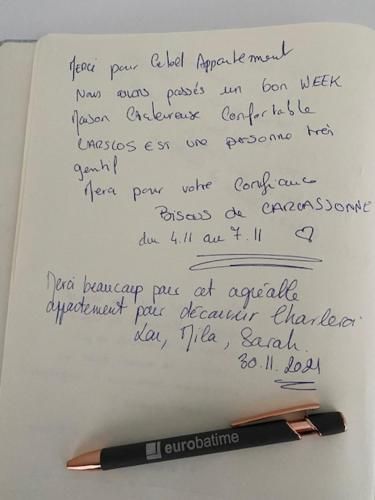 Merci pour Cebel Appartement
Nous avons passés un bon WEEK
Maison Chaleureuse Confortable
CARSLOS EST une personne trei
gentil
Merci pour votre Confiance
Bisous de CARCASSONNE
du 4.11 au 7.11 ♡
Merci beaucoup pour cet agréable
appartement pour découvrir Charleroi.
Lou, Mila, Sarah.
30.11.2021
eurobatime